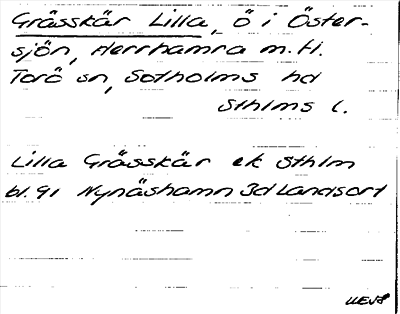 Grässkär Lilla, ö i Öster-
sjön, Herrhamra m.fl.
Torö sn, Sotholms hd
Sthlms l.
Lilla Grässkär ek Sthlm
bl. 91 Nynäshamn 3d Landsort